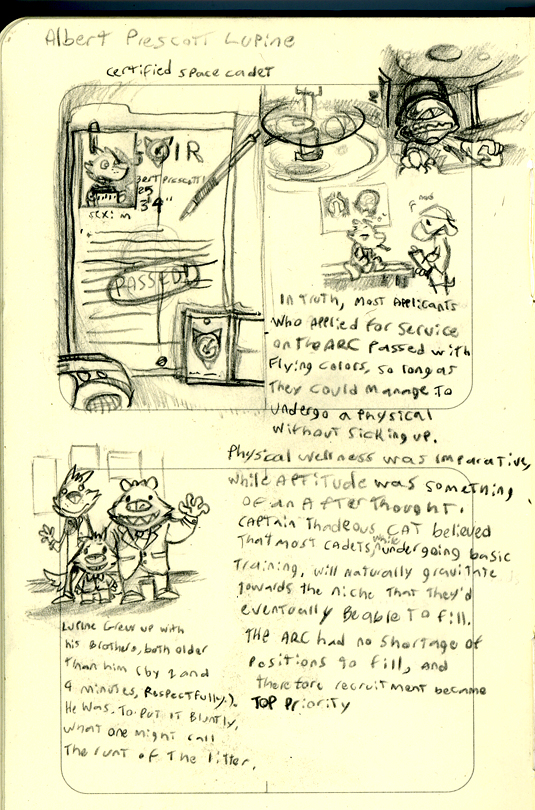 Albert Prescott Lupine
certified space cadet
OIR
ert Prescott
25
3'4"
sex: m
PASSED!
In Truth, most Applicants
who Applied for Service
on the ARC Passed with
Flying colors, so long as
They could manage To
undergo a Physical
without Sicking up.
Physical wellness was Imparative,
while APTITUDE was something
OF an AfterThought.
CAPTAIN Thadeous CAT believed
That most cadets, while undergoing basic
Training, will naturally gravitate
towards the niche That They'd
eventually Be able To fill.
The ARC had no Shortage of
Positions to fill, and
therefore recruitment became
TOP Priority
Lupine Grew up with
his Brothers, both older
Than him (by 2 and
4 minutes, Respectfully.).
He was. To Put IT Bluntly,
what one might call
The runt of The litter.